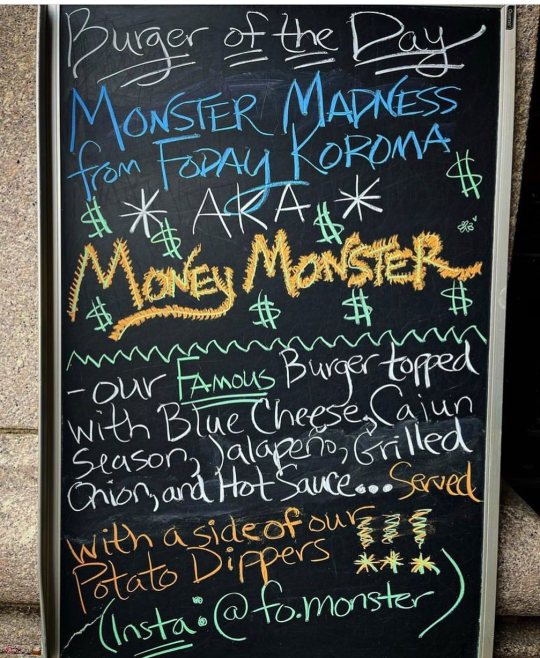 Burger of the Day
MONSTER MADNESS
from FODAY KOROMA
$ * AKA * $
$ $
MONEY MONSTER
$ $ $ $
- our FAMOUS Burger topped
with Blue Cheese, Cajun
Season, Jalapeño, Grilled
Onion, and Hot Sauce... Served
with a side of our
Potato Dippers !!!
(Insta: @fo.monster)